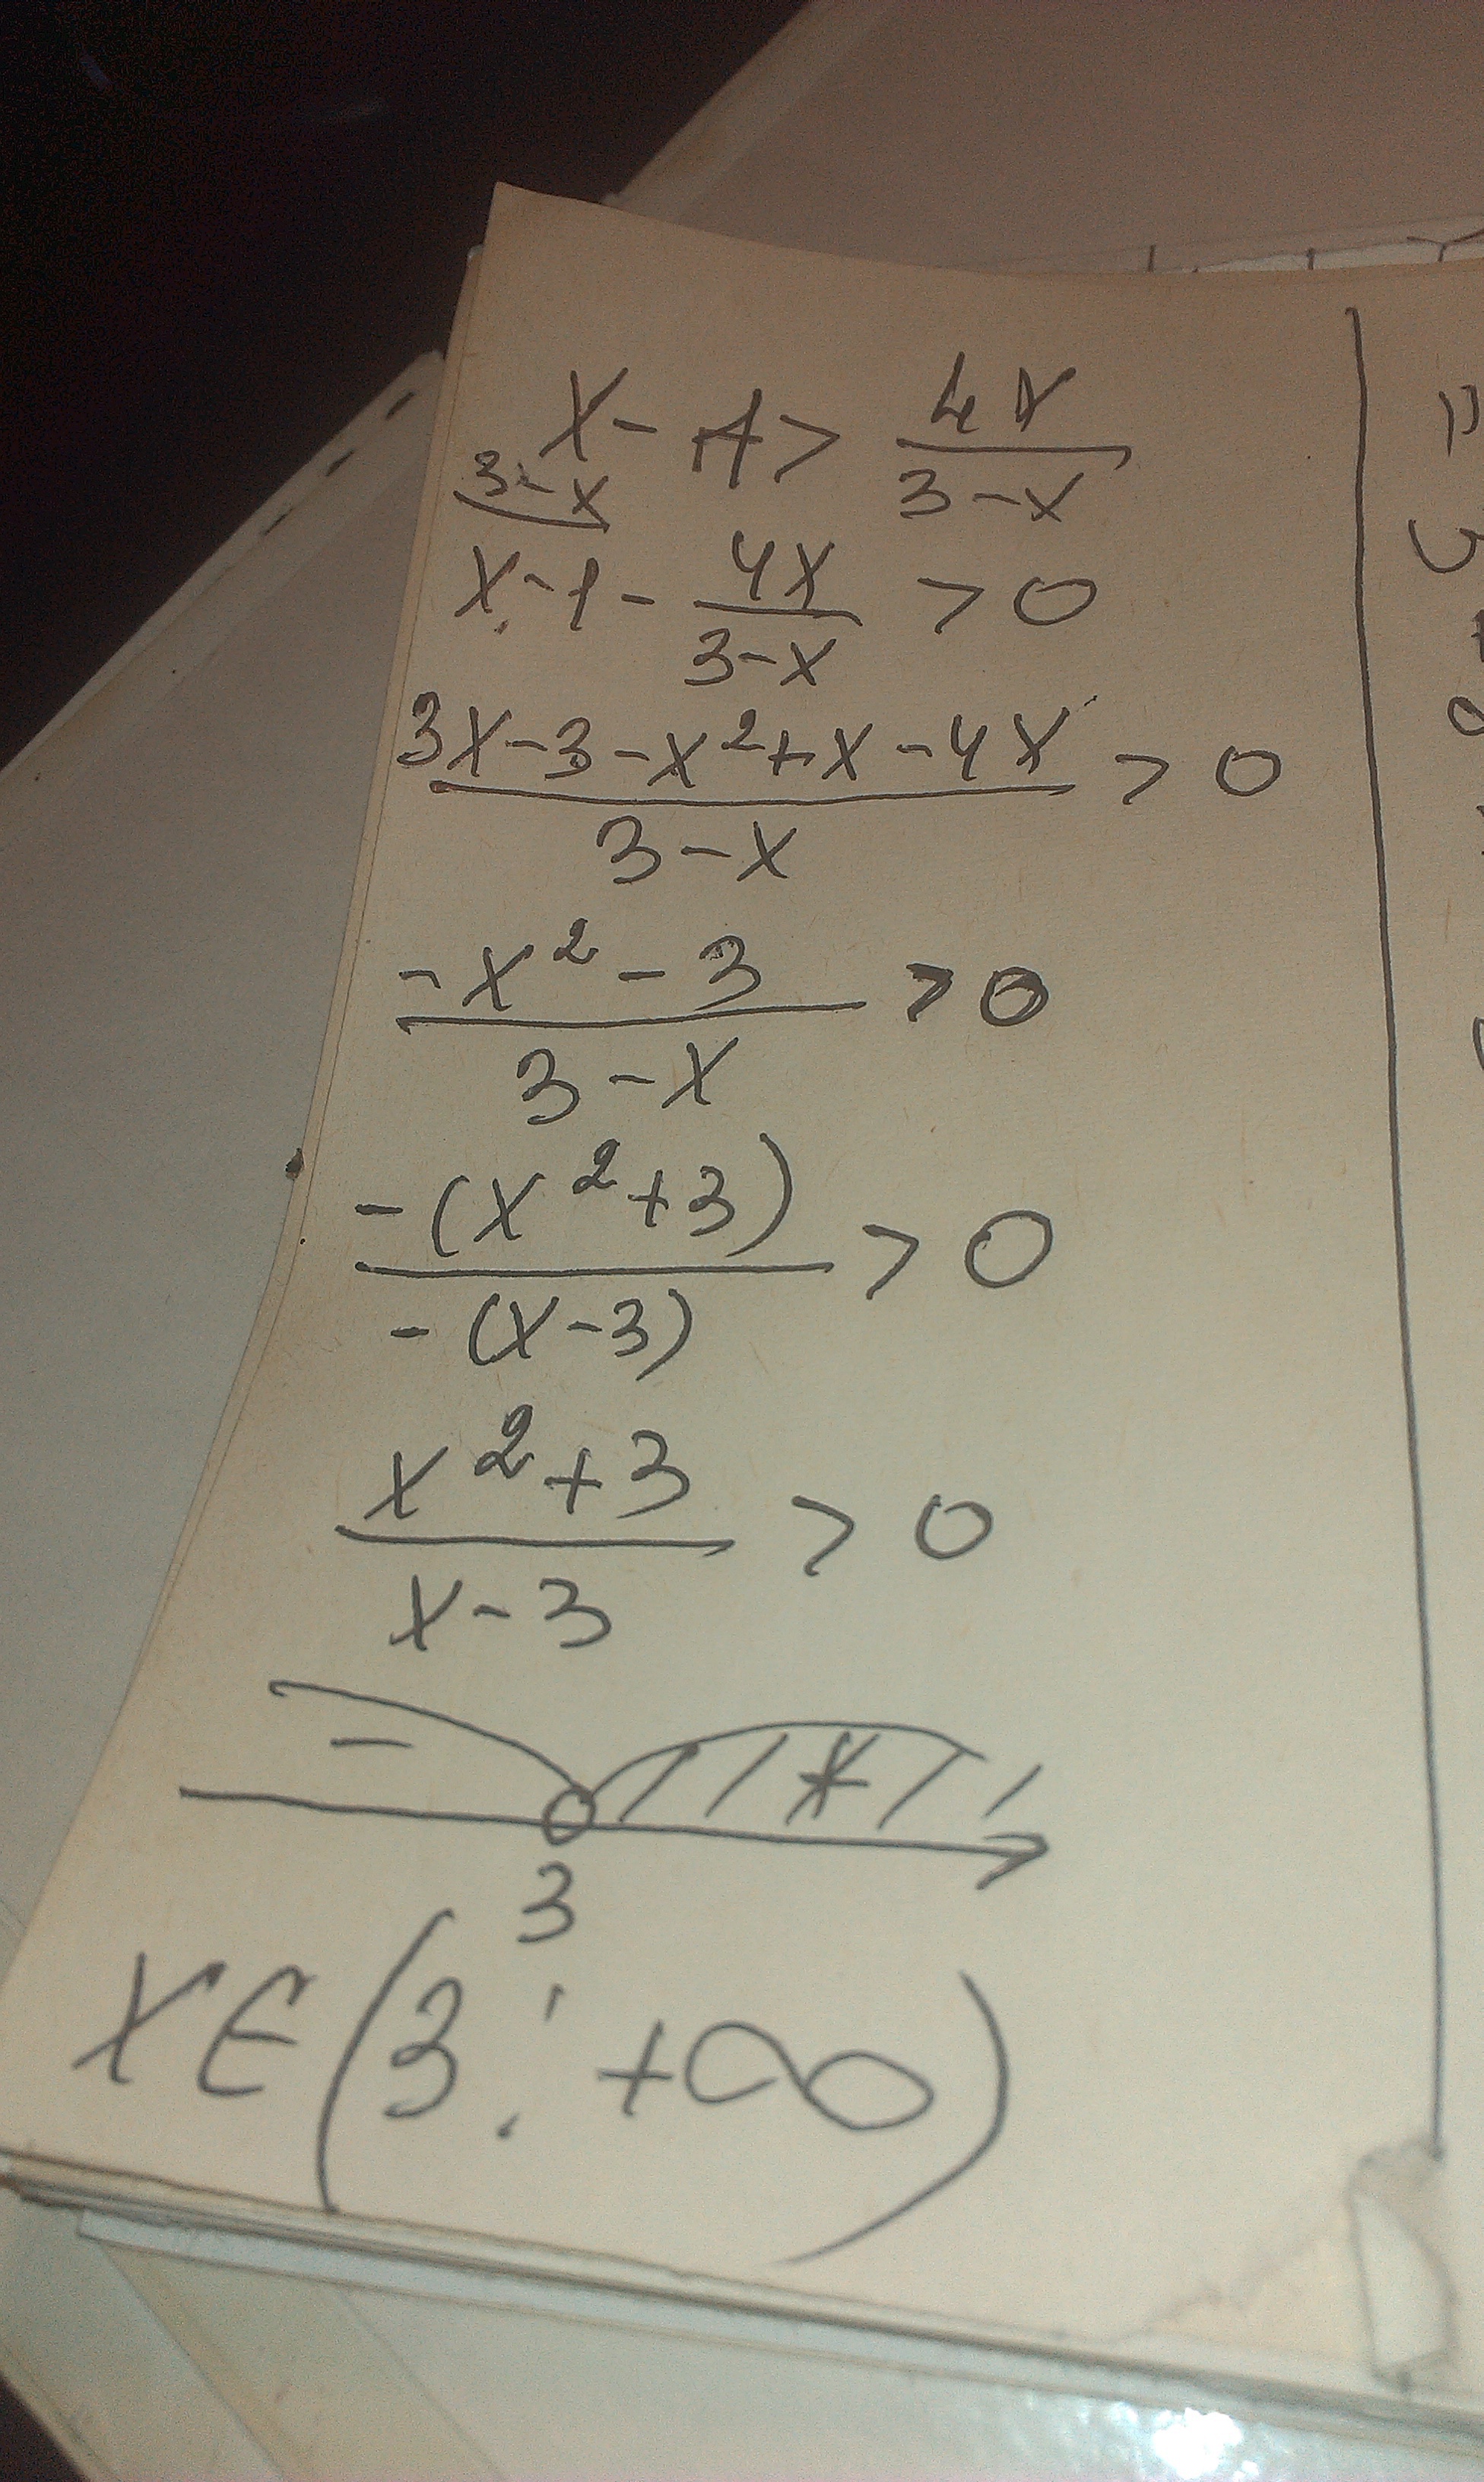 x - 1 > 4x / (3-x)
3-x
x - 1 - 4x / (3-x) > 0
(3x-3-x²+x-4x) / (3-x) > 0
(-x²-3) / (3-x) > 0
-(x²+3) / -(x-3) > 0
(x²+3) / (x-3) > 0
- +
3
x∈(3; +∞)